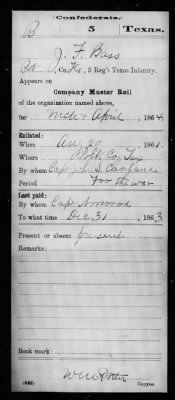 Confederate.
B 5 Texas.
J. F. Bass
Pvt, Co. K, 5 Reg't Texas Infantry.
Appears on
Company Muster Roll
of the organization named above,
for Mch & April, 1864
Enlisted:
When Aug 20, 1861.
Where Polk Co, Tex
By whom Capt Jno S. Cleveland
Period For the war
Last paid:
By whom Capt Norwood
To what time Dec 31, 1863
Present or absent present
Remarks:
Book mark:
(642) Copyist.